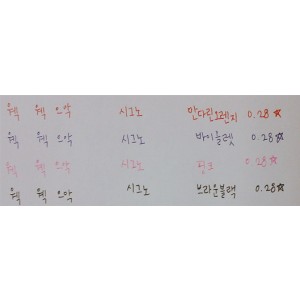 웩 웩 으악 시그노 만다린오렌지 0.28☆
웩 웩 으악 시그노 바이올렛 0.28☆
웩 웩 으악 시그노 핑크 0.28☆
웩 웩 으악 시그노 브라운블랙 0.28☆